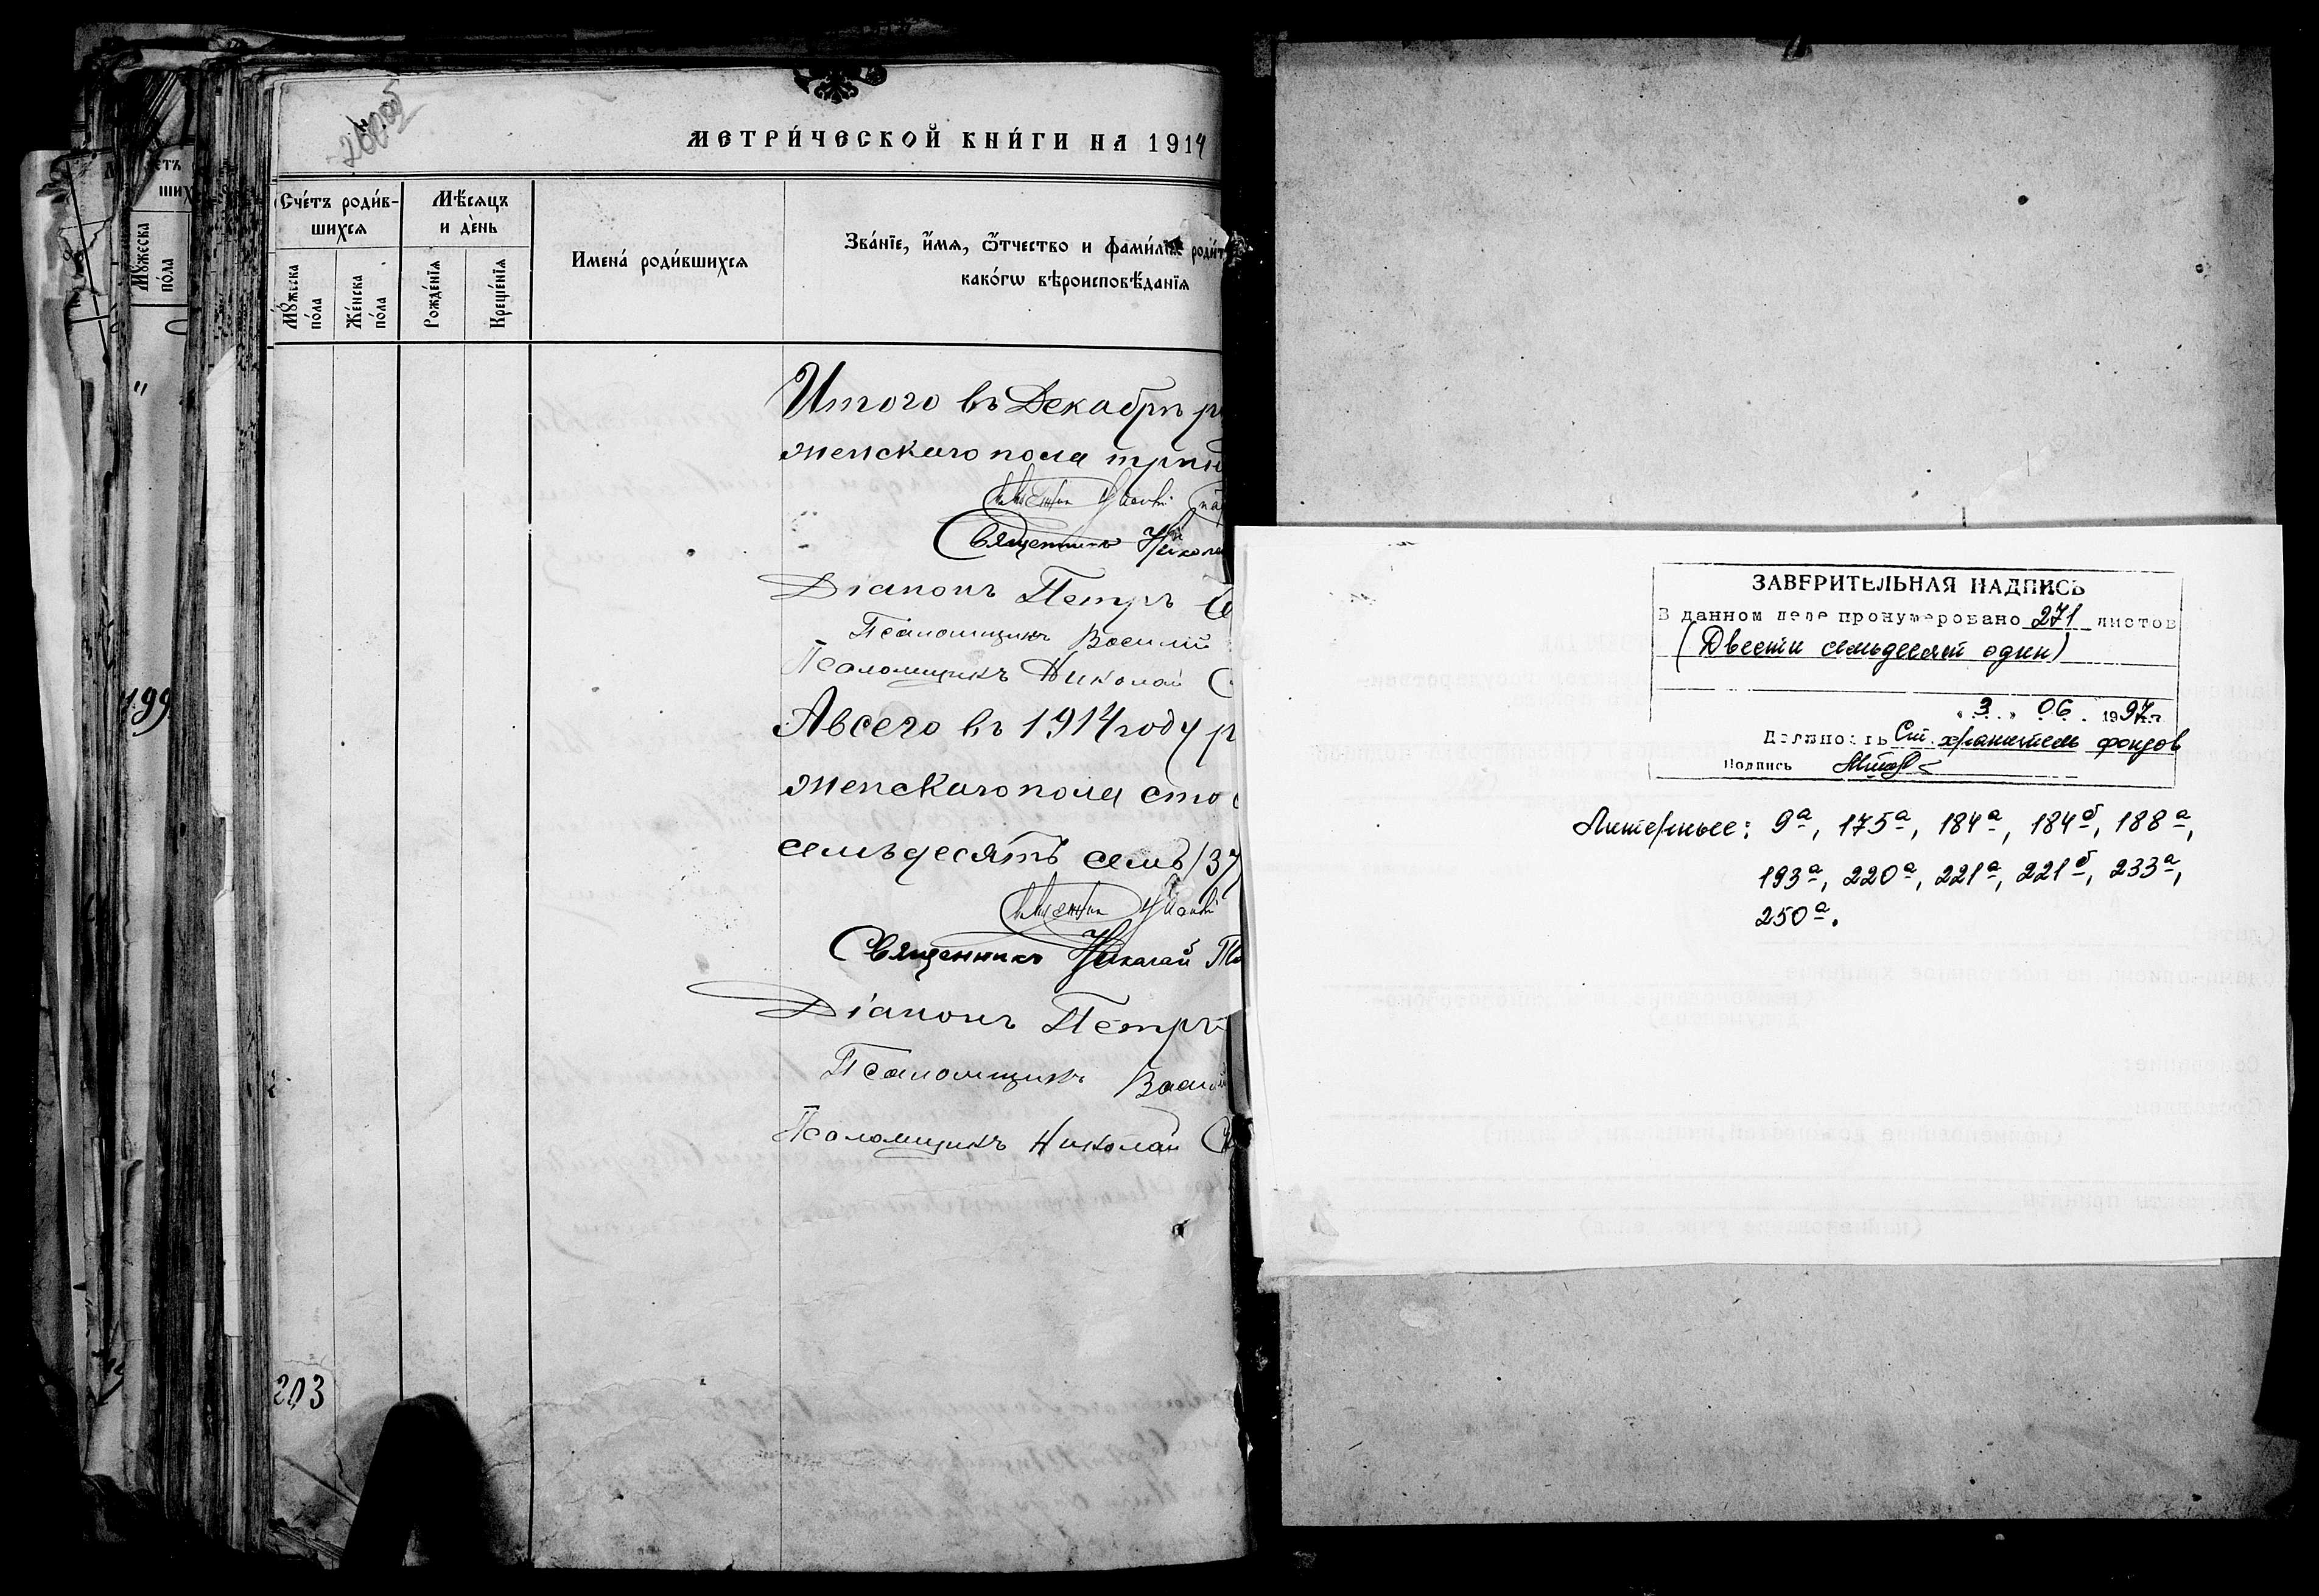 260об
МЕТРИ́ЧЕСКОЙ КНИ́ГИ НА 1914
Сче́тъ роди́в-
шихся
Мѣ́сяцъ
и де́нь
Имена́ роди́вшихся
Зва́нїе, и҆́мя, ѻ҆́тчество и фами́лїя роди́т
како́гѡ вѣроисповѣ́данїя
Мꙋ́жеска
по́ла
Же́нска
по́ла
Рожде́нїя
Креще́нїя
Мꙋ́жеска
по́ла
"
199
Итого въ Декабрѣ р
женскаго пола трид
Священникъ Никола
Дiаконъ Петръ
Псаломщикъ Василiй
Псаломщикъ Николай С
А всего въ 1914 году р
женскаго пола сто
семьдесятъ семь /37
Священникъ Николай
Дiаконъ Петръ
Псаломщикъ Васил
Псаломщикъ Николай С
203
ЗАВЕРИТЕЛЬНАЯ НАДПИСЬ
В данном деле пронумеровано 271 листов
(Двести семьдесят один)
"3" 06. 1997 г.
Должность Ст. хранитель фондов
Подпись
Литерные: 9а, 175а, 184а, 184б, 188а,
193а, 220а, 221а, 221б, 233а,
250а.